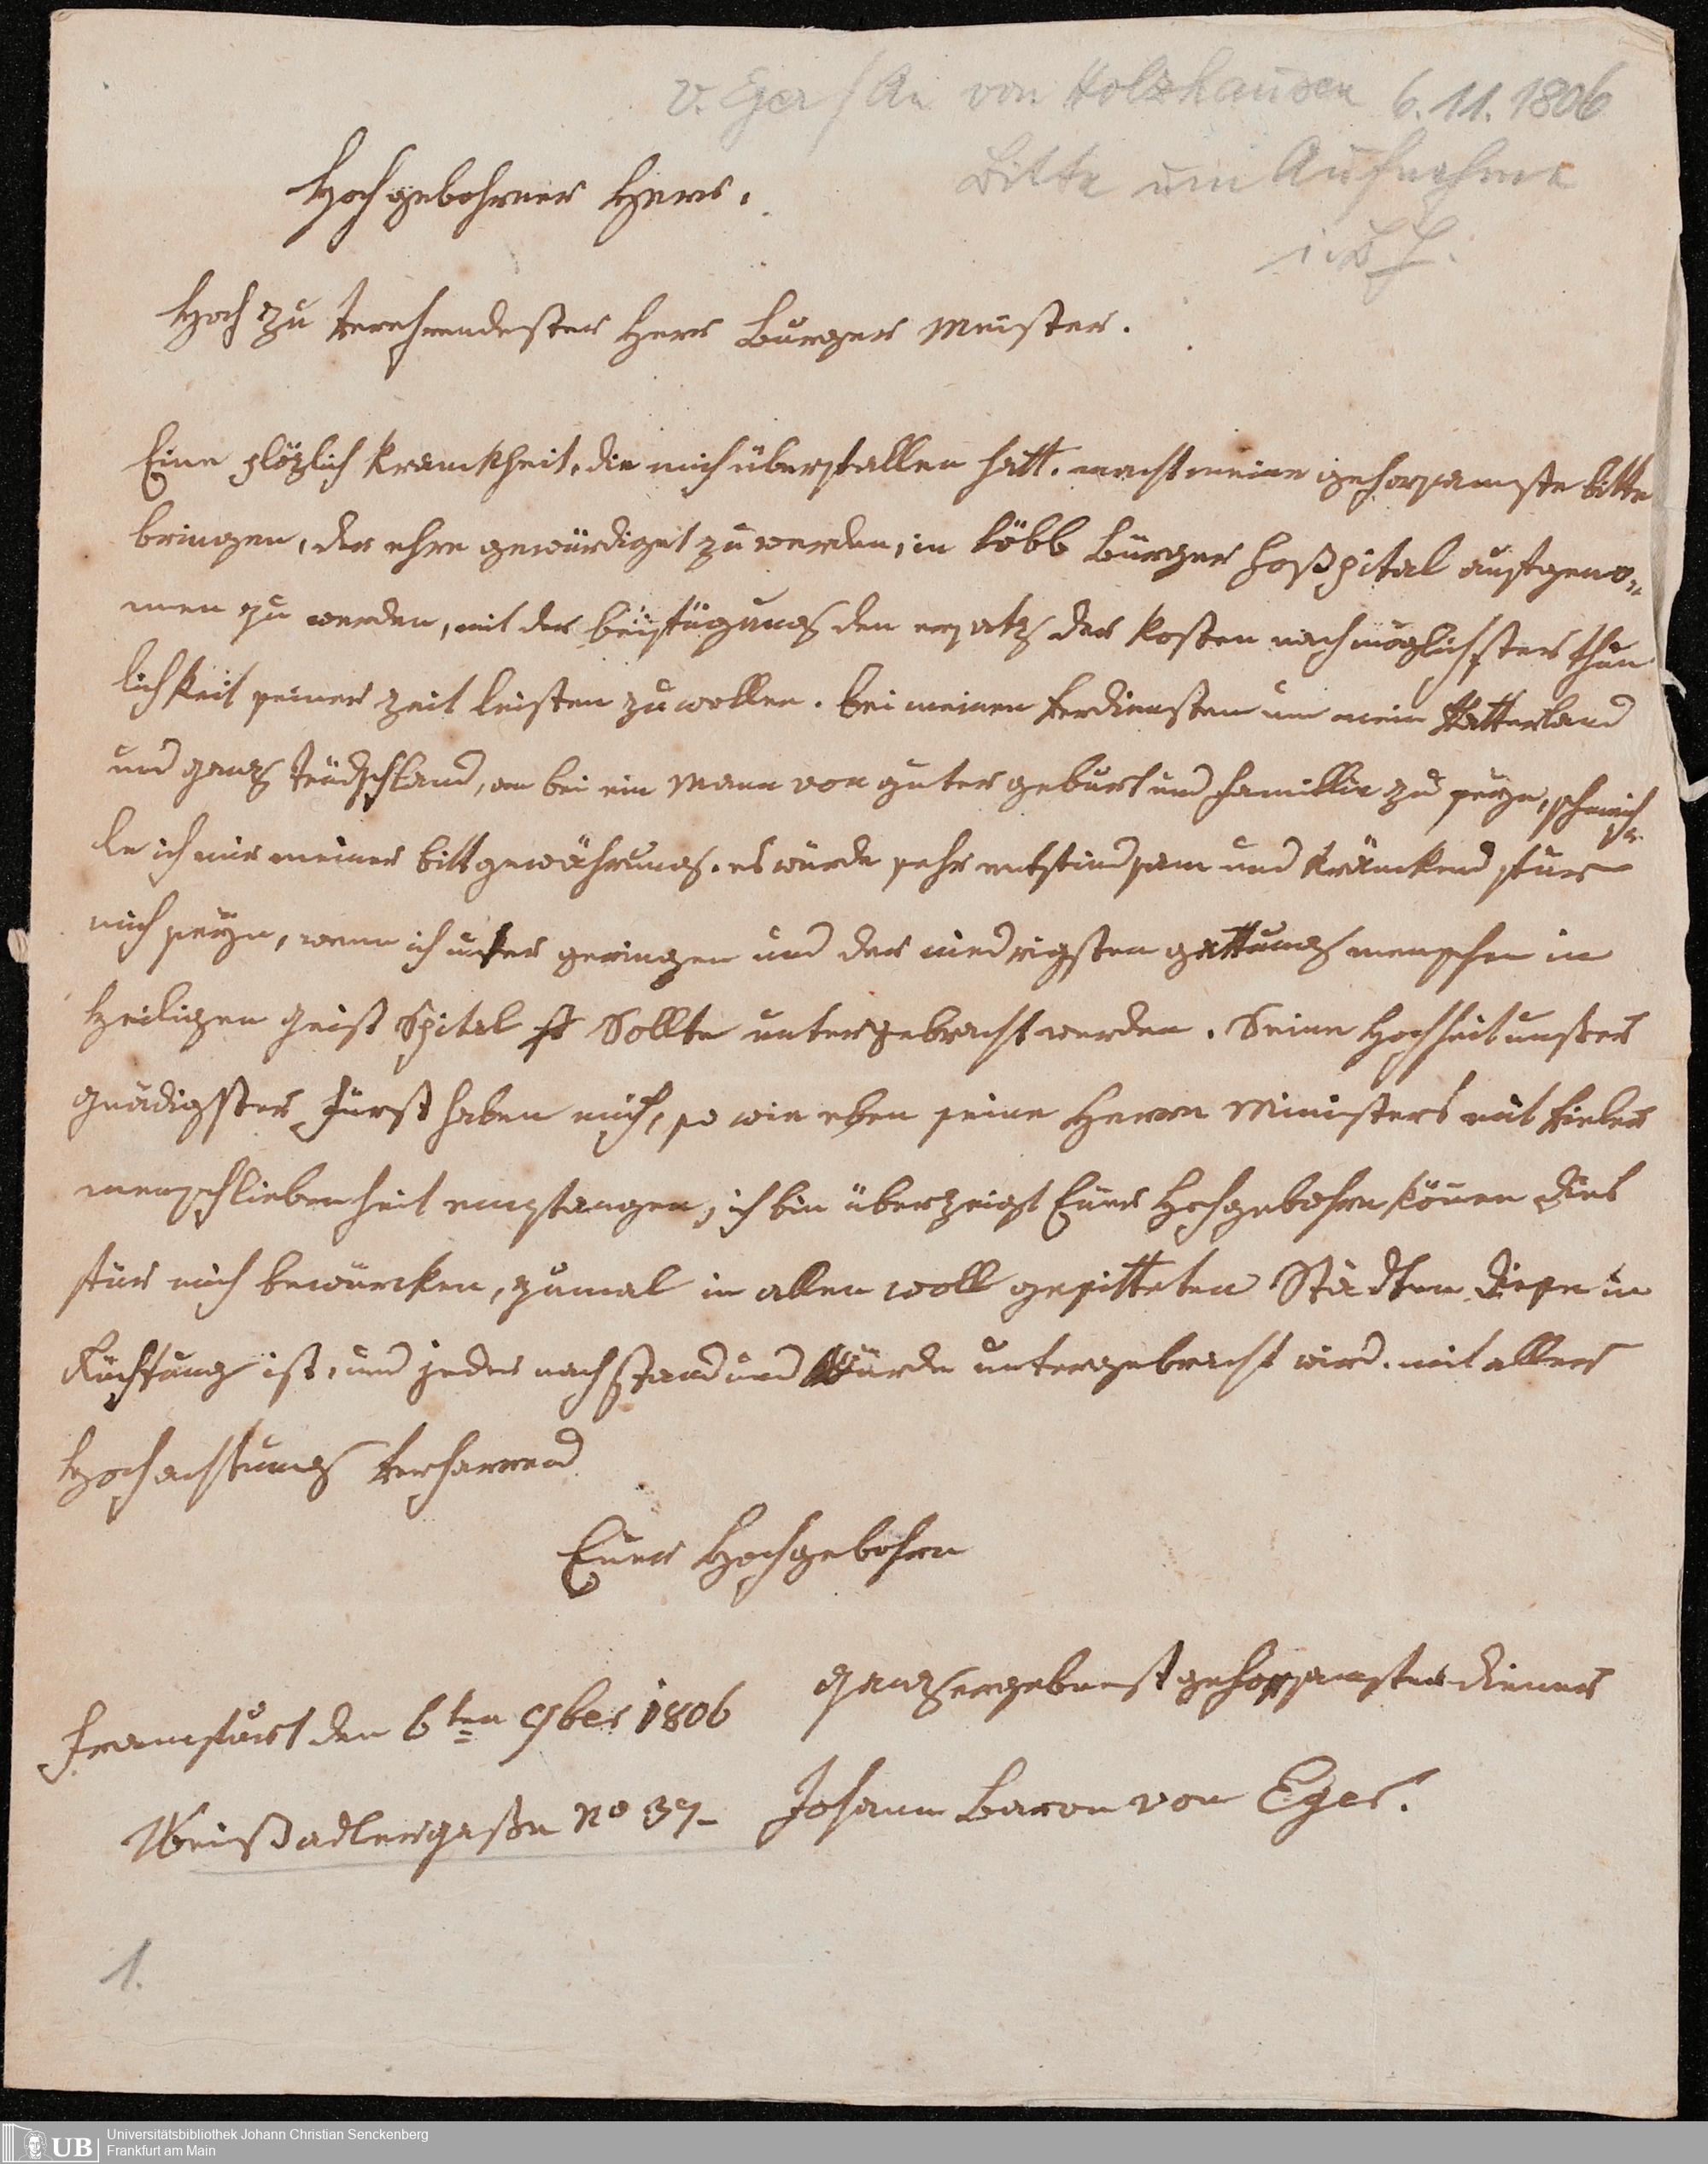 v. Eger / An von Holzhausen 6.11.1806
Bitte um Aufnahme
Hochgebohrner Herr.
Hoch zu Verehrendester Herr Burger Meister.
Eine plözlich Kranckheit, die mich überfallen hatt. macht meine gehorsamste bitte
bringen, der ehre gewürdiget zu werden, in Löbb Bürger Hoßpital aufgeno-
men zu werden, mit der beifügung den ersatz der Kosten nach möglichster thun
lichkeit seiner zeit leisten zu wollen. bei meinen Verdiensten um mein Vatterland
und ganz Teüdschland, an bei ein Mann von guter geburt und Famillie zu seyn, schmeich
le ich mir meiner bitt gewährung. es würde sehr entfindsam und kränckend fur
mich seyn, wenn ich unter geringen und der niedrigsten gattung menschen in
Heiligen Geist Spital Sollte untergebracht werden. Seine Hochheit unßer
gnädigster Fürst haben mich, so wie eben seine Herren Ministers mit Vieler
menschliebenheit empfangen, ich bin überzeigt Euer Hochgebohrn könen dies
für mich bewürcken, zumal in allen woll gesitteten Städten diese in
Richtung ist, und jeder nach stand und Würde untergebracht wird. mit aller
Hochachtung Verharrend
Euer Hochgebohrn
ganz ergebenst gehorsamster diener
Franckfurt den 6ten 9ber 1806
Weißadlergaße No 37- Johann Baron von Eger.
1.
UB Universitätsbibliothek Johann Christian Senckenberg
Frankfurt am Main